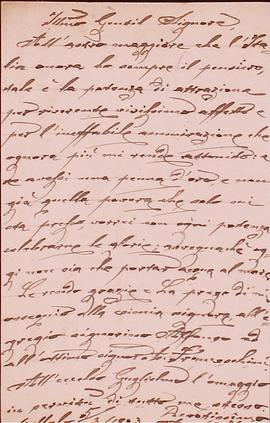 Ill.mo Gentil Signore,
All' astro maggiore che l'Ita
lia onora ho sempre il pensiero,
tale è la potenza di attrazione
per riverente vivissimo affetto e
per l'ineffabile ammirazione che
ognora più mi rende attonito, e
se avessi una penna d'oro, e non
già quella povera che solo mi
sta presso, vorrei con ogni potenza
celebrarne le glorie; avvegnachè og
gi non sia che portar acqua al mare
Le rendo grazie e La prego di mi
ossequio alla esimia signora, all'e
gregio signorino Alfonso ed
all'ottimo signor Franceschini.
All'eccelso Guglielmo l'omaggio
in perpetuo di tutto me stesso.
Devotissimo